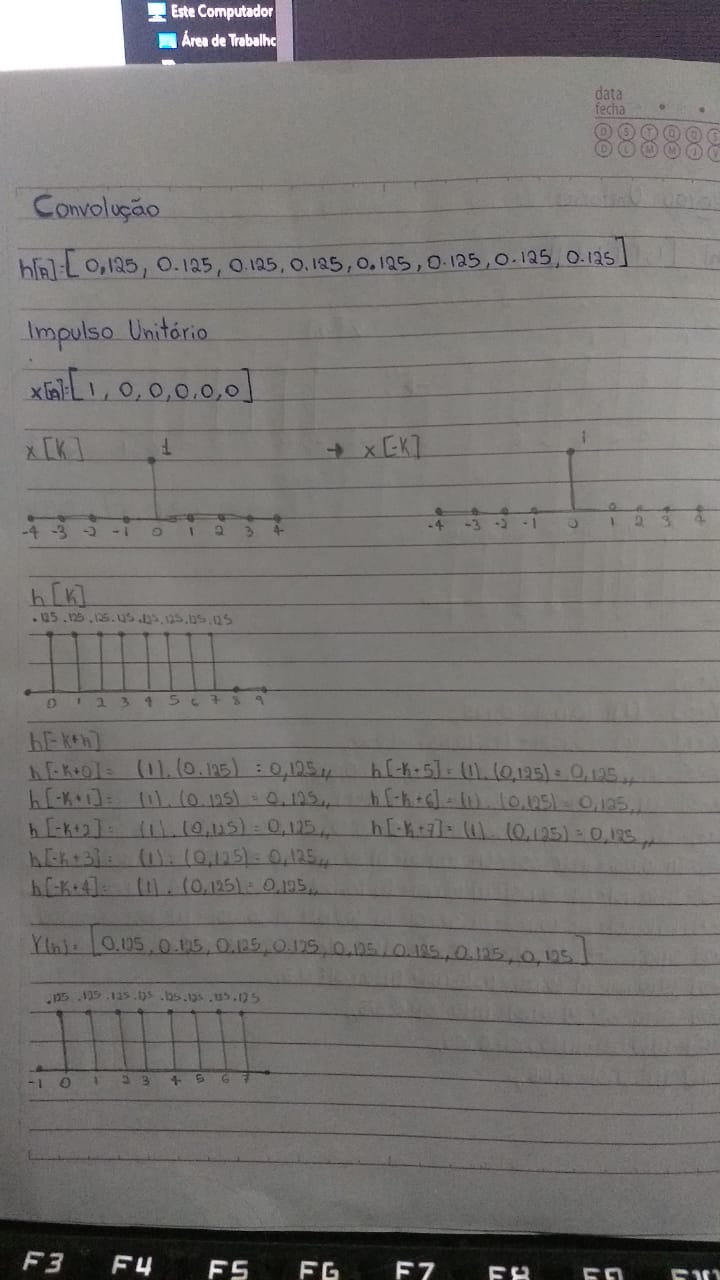 Este Computador
Área de Trabalho
data
fecha
D S T Q Q S
D L M M J V
Convolução
h[n]=[0,125, 0.125, 0.125, 0.125, 0.125, 0.125, 0.125, 0.125]
Impulso Unitário
x[n]=[1, 0, 0, 0, 0, 0]
x[K] 1 → x[-K] 1
-4 -3 -2 -1 0 1 2 3 4 -4 -3 -2 -1 0 1 2 3 4
h[K]
.125 .125 .125 .125 .125 .125 .125 .125
0 1 2 3 4 5 6 7 8 9
h[-K+n]
h[-K+0]= (1).(0.125) = 0,125,, h[-K+5]= (1).(0,125)= 0,125,,
h[-K+1]= (1).(0.125) = 0,125,, h[-K+6]=(1).(0,125)=0,125,,
h[-K+2]= (1).(0,125)= 0,125,, h[-K+7]= (1).(0,125)=0,125,,
h[-K+3]= (1).(0,125)=0,125,,
h[-K+4]= (1).(0,125)=0,125,,
Y(n)= [0.125, 0.125, 0,125, 0.125, 0,125, 0.125, 0.125, 0,125]
.125 .125 .125 .125 .125 .125 .125 .125
-1 0 1 2 3 4 5 6 7
F3 F4 F5 F6 F7 F8 F9